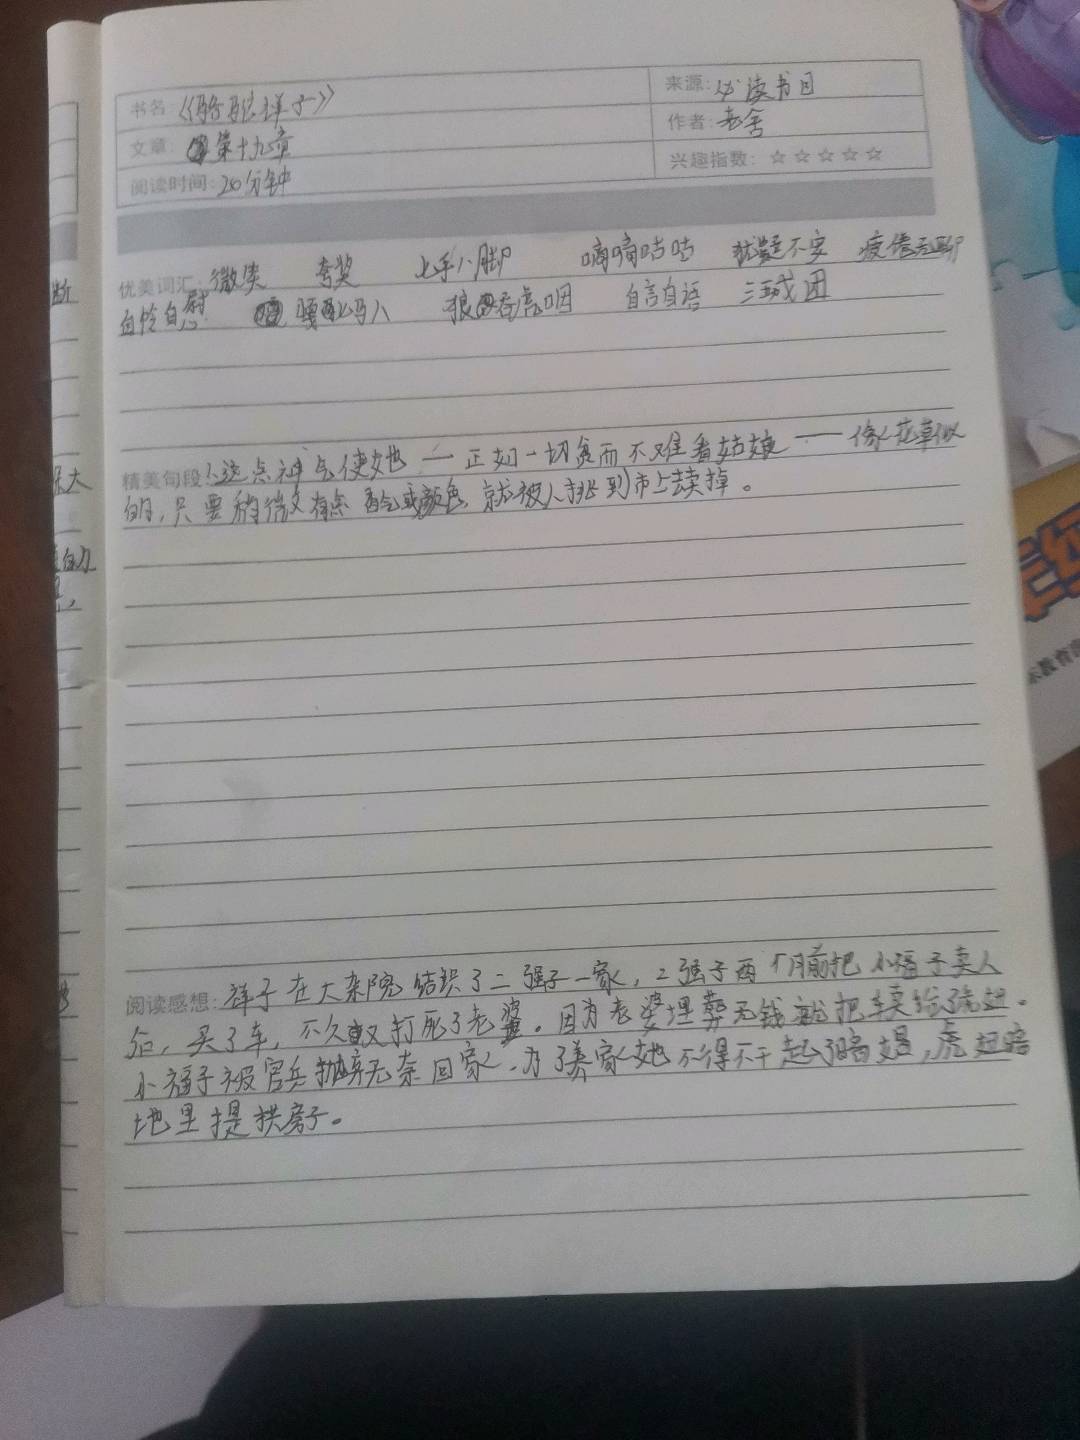 书名:《骆驼祥子》
来源:必读书目
文章:第十九章
作者:老舍
阅读时间:20分钟
兴趣指数:☆☆☆☆☆
优美词汇:微笑 夸奖 七手八脚 嘀嘀咕咕 犹疑不安 疲倦无聊
自怜自慰 骡马人 狼吞虎咽 自言自语 三五成团
精美句段:这点神气使她——正如一切贫而不难看姑娘——像花草似
的,只要稍微有点香气或颜色,就被人挑到市上去卖掉。
阅读感想:祥子在大杂院结识了二强子一家,2强子两个月前把小福子卖人
后,买了车,不久又打死了老婆。因为老婆埋葬无钱就把车卖给了虎妞。
小福子被官兵抛弃无奈回家,为了养家她不得不干起了暗娼,虎妞暗
地里提供房子。
断
大
的力
示教育部